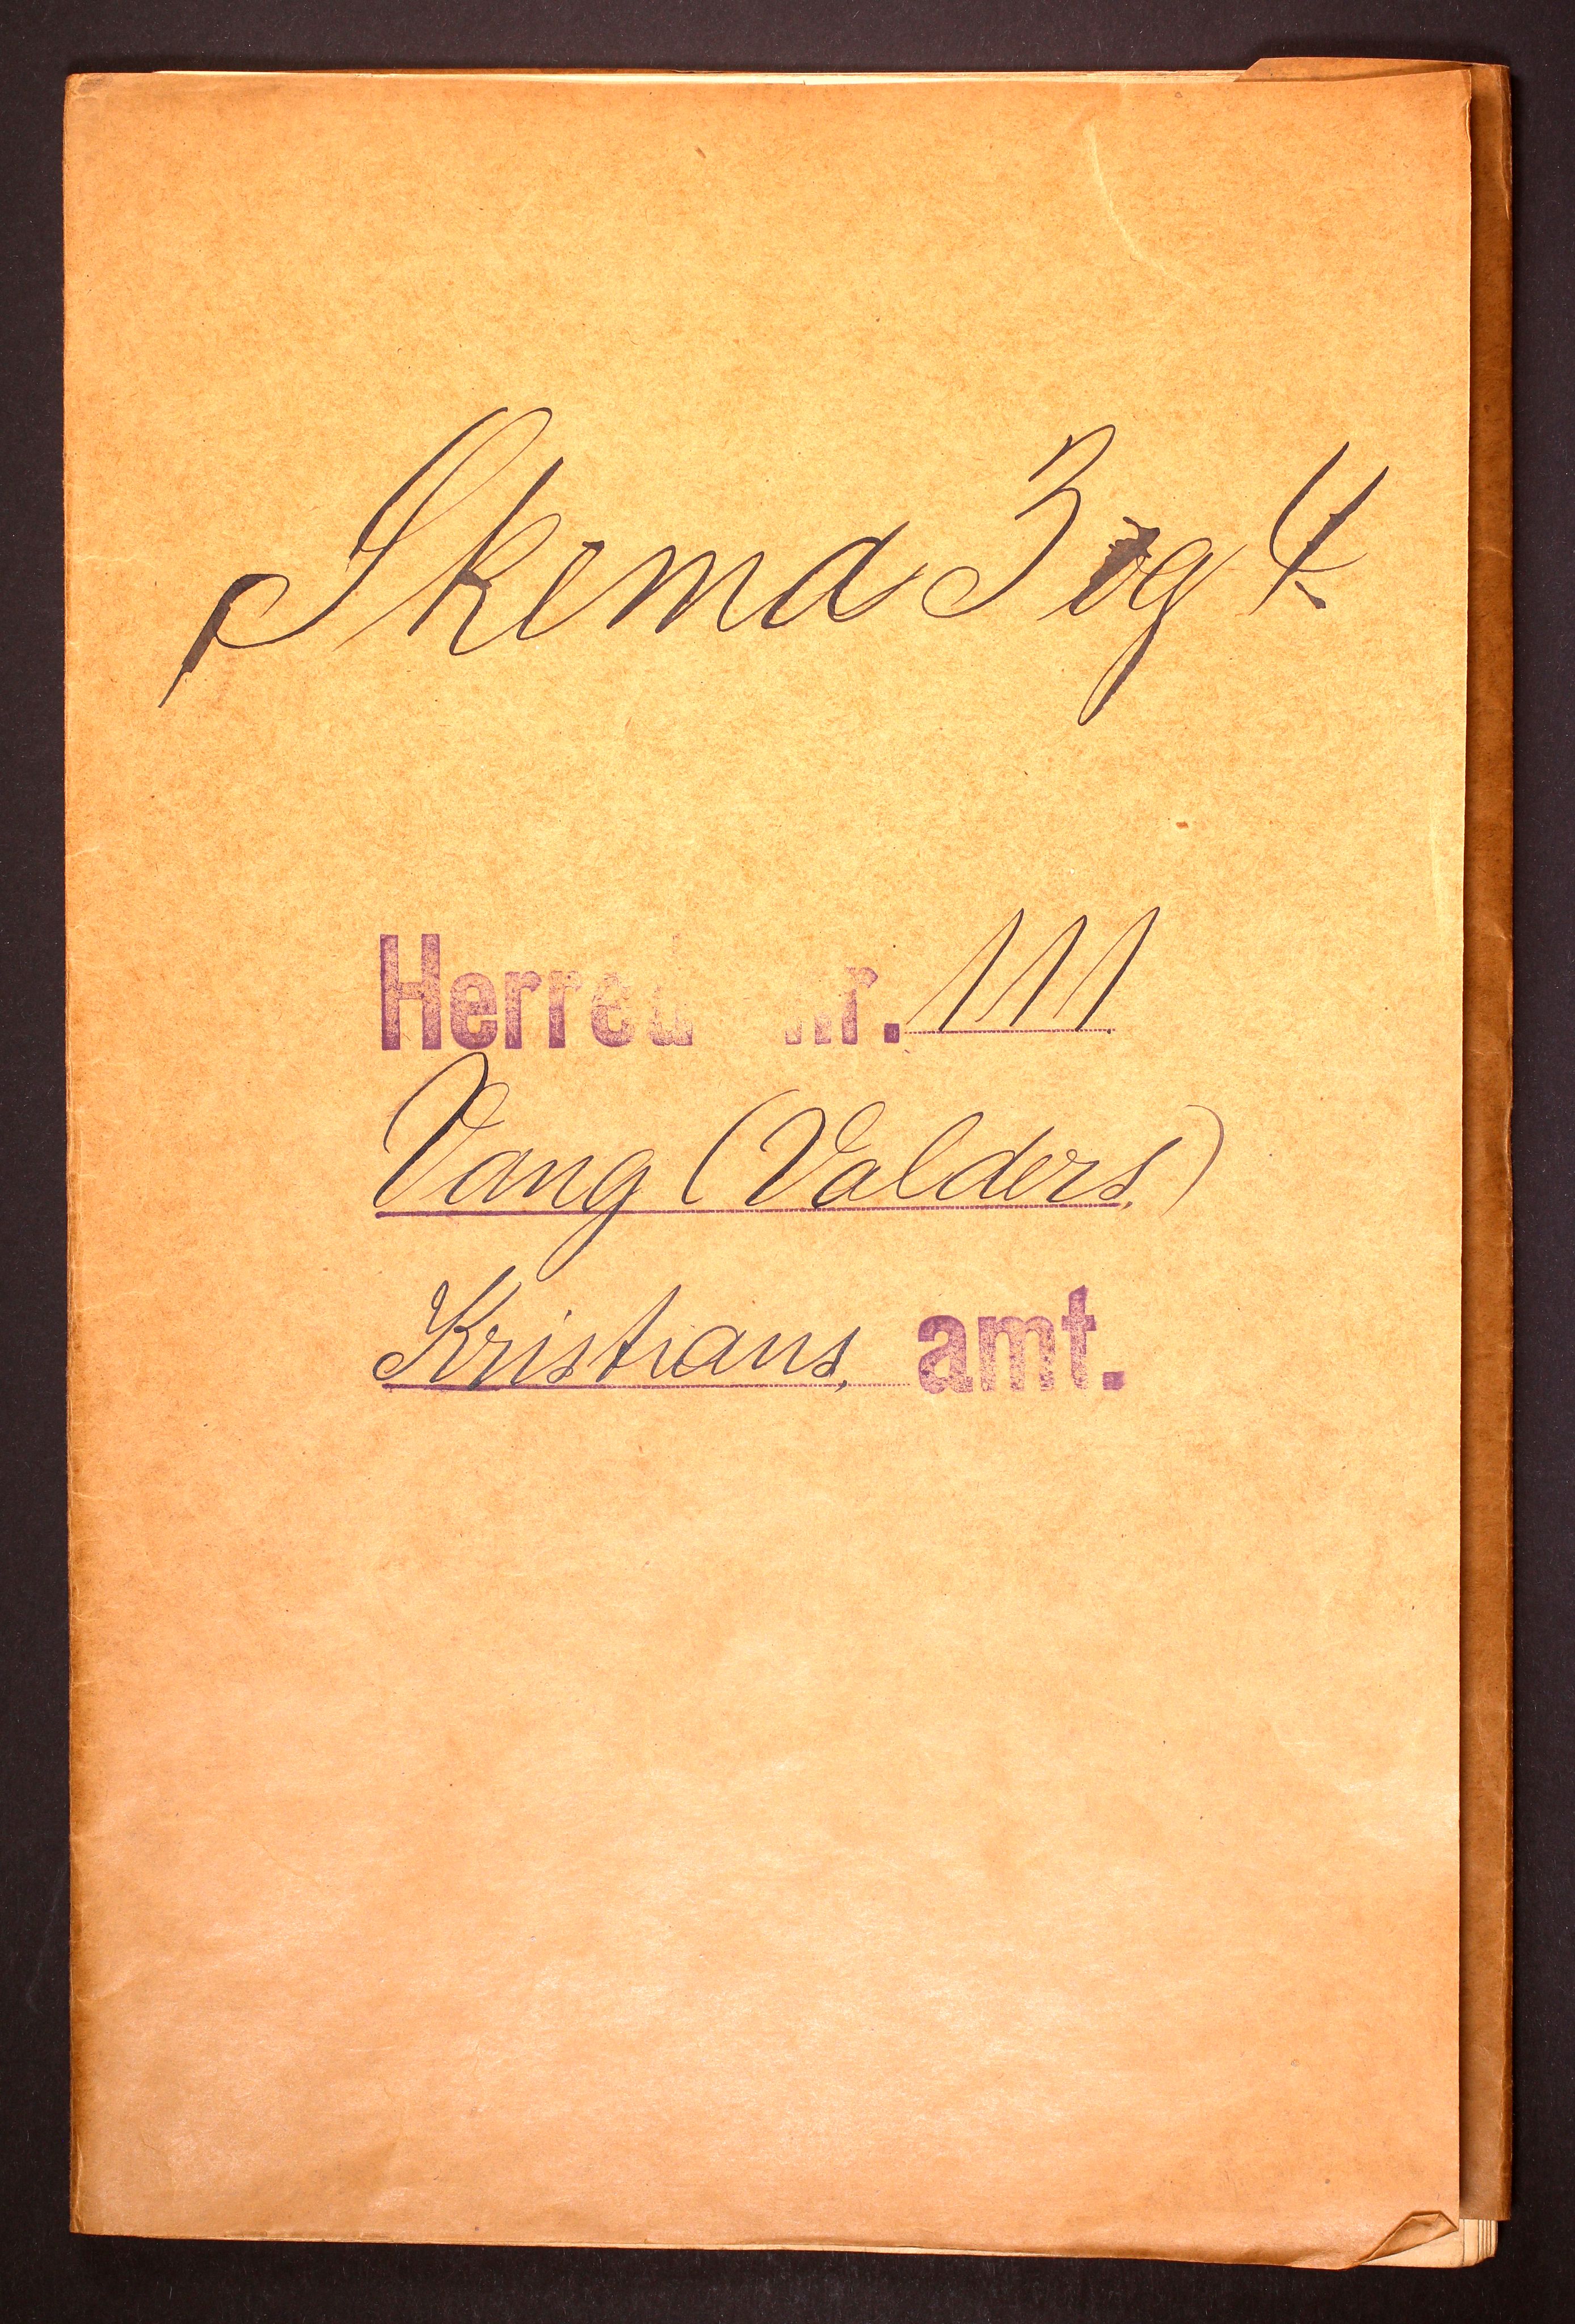 Skema 3 og 4.
Herred nr. 111
Vang (Valders)
Kristians amt.